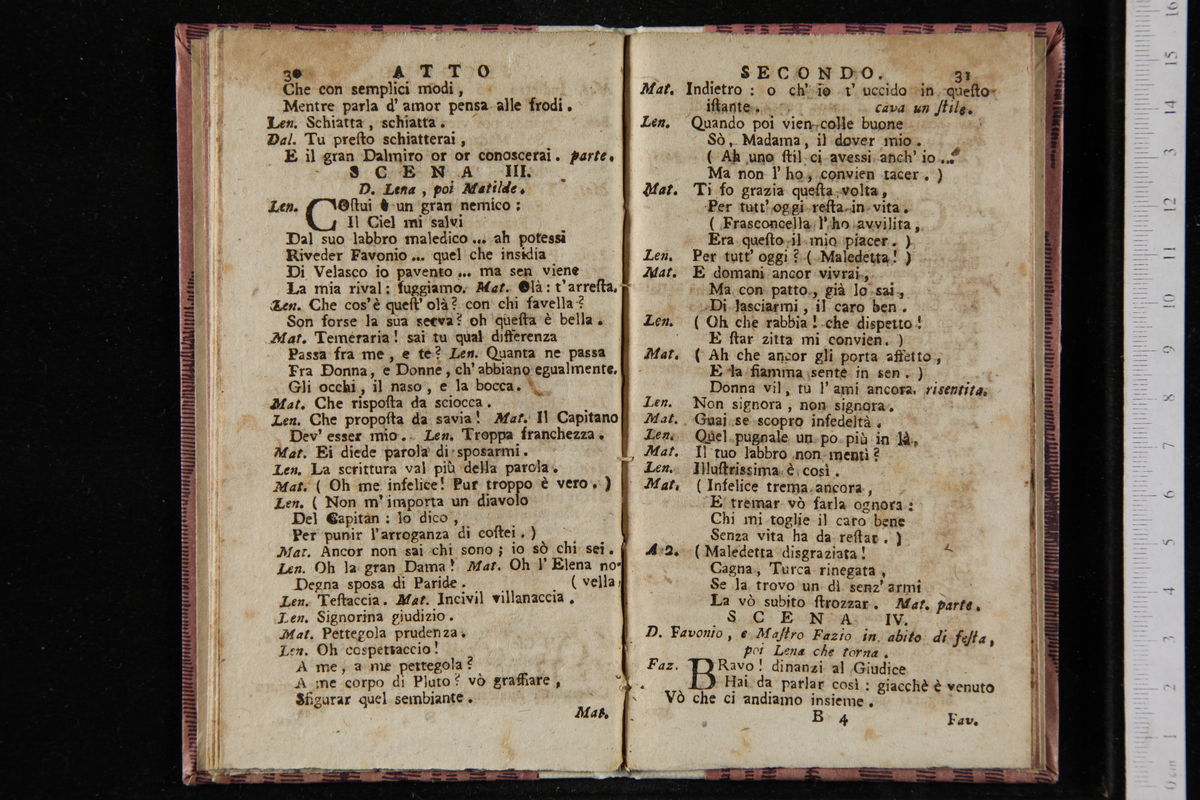 30 ATTO
Che con semplici modi,
Mentre parla d' amor pensa alle frodi.
Len. Schiatta, schiatta.
Dal. Tu preſto schiatterai,
E il gran Dalmiro or or conoscerai. parte.
SCENA III.
D. Lena, poi Matilde.
Len. COſtui è un gran nemico:
Il Ciel mi salvi
Dal suo labbro maledico ... ah potessi
Riveder Favonio ... quel che insidia
Di Velasco io pavento ... ma sen viene
La mia rival: fuggiamo. Mat. Olà: t'arreſta.
Len. Che cos'è queſt' olà? con chi favella?
Son forse la sua serva? oh queſta è bella.
Mat. Temeraria! sai tu qual differenza
Passa fra me, e te? Len. Quanta ne passa
Fra Donna, e Donne, ch'abbiano egualmente.
Gli occhi, il naso, e la bocca.
Mat. Che rispoſta da sciocca.
Len. Che propoſta da savia! Mat. Il Capitano
Dev' esser mio. Len. Troppa franchezza.
Mat. Ei diede parola di sposarmi.
Len. La scrittura val più della parola.
Mat. ( Oh me infelice! Pur troppo è vero. )
Len. ( Non m'importa un diavolo
Del Capitan: lo dico,
Per punir l'arroganza di coſtei. )
Mat. Ancor non sai chi sono; io sò chi sei.
Len. Oh la gran Dama! Mat. Oh l'Elena no-
Degna sposa di Paride. ( vella,
Len. Teſtaccia. Mat. Incivil villanaccia.
Len. Signorina giudizio.
Mat. Pettegola prudenza.
Len. Oh cospettaccio!
A me, a me pettegola?
A me corpo di Pluto? vò graffiare,
Sfigurar quel sembiante.
Mat.
SECONDO. 31
Mat. Indietro: o ch' io t' uccido in queſto
iſtante. cava un ſtile.
Len. Quando poi vien colle buone
Sò, Madama, il dover mio.
( Ah uno ſtil ci avessi anch' io ...
Ma non l' ho, convien tacer. )
Mat. Ti fo grazia queſta volta,
Per tutt' oggi reſta in vita.
( Frasconcella l' ho avvilita,
Era queſto il mio piacer. )
Len. Per tutt' oggi? ( Maledetta! )
Mat. E domani ancor vivrai,
Ma con patto, già lo sai,
Di lasciarmi, il caro ben.
Len. ( Oh che rabbia! che dispetto!
E ſtar zitta mi convien. )
Mat. ( Ah che ancor gli porta affetto,
E la fiamma sente in sen. )
Donna vil, tu l' ami ancora. risentita.
Len. Non signora, non signora.
Mat. Guai se scopro infedeltà.
Len. Quel pugnale un po più in là,
Mat. Il tuo labbro non mentì?
Len. Illuſtrissima è così.
Mat. ( Infelice trema ancora,
E tremar vò farla ognora:
Chi mi toglie il caro bene
Senza vita ha da reſtar. )
A 2. ( Maledetta disgraziata!
Cagna, Turca rinegata,
Se la trovo un dì senz' armi
La vò subito ſtrozzar. Mat. parte.
SCENA IV.
D. Favonio, e Maſtro Fazio in abito di feſta,
poi Lena che torna.
Faz. BRavo! dinanzi al Giudice
Hai da parlar così: giacchè è venuto
Vò che ci andiamo insieme.
B 4 Fav.